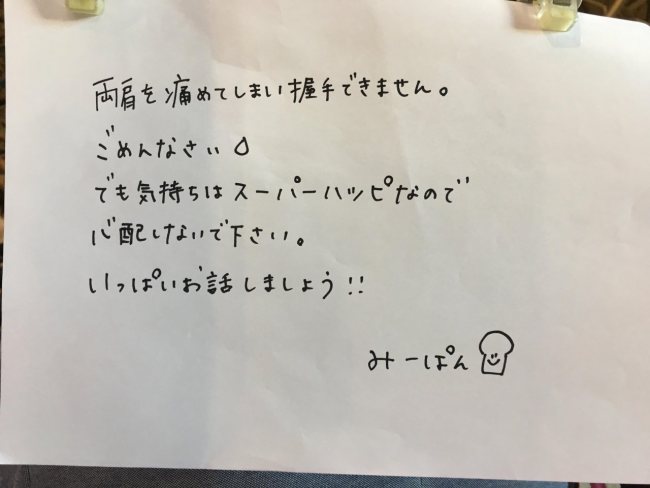 両肩を痛めてしまい握手できません。
ごめんなさい
でも気持ちはスーパーハッピなので
心配しないで下さい。
いっぱいお話しましょう!!
みーぱん